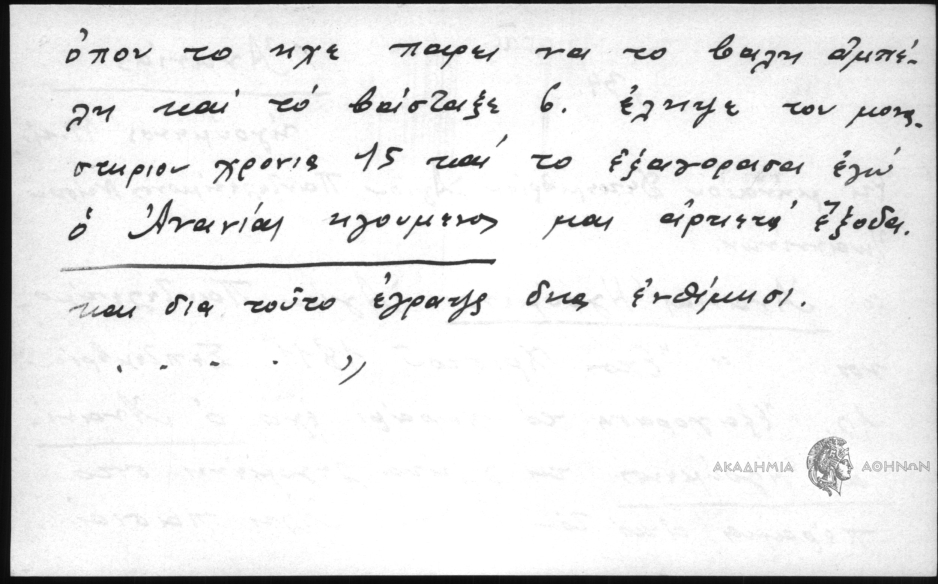 ὁπου το ηχε παρει να το βαλη ἀμπέ-
λη καὶ τὸ βαίσταξε 6. ἐληψε του μονα-
στηριου χρονια 15 καὶ το ἐξαγορασα ἐγώ
ὁ Ἀνανίας ηγουμενος μαι ἀρκιετά ἔξοδα.
και δια τοῦτο ἐγραψα δια ἐνθίμησι.
. . . . "
ΑΚΑΔΗΜΙΑ ΑΘΗΝΩΝ